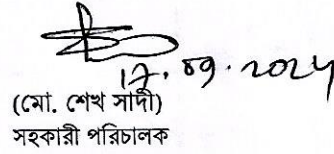 17.09.2024
(মো. শেখ সাদী)
সহকারী পরিচালক